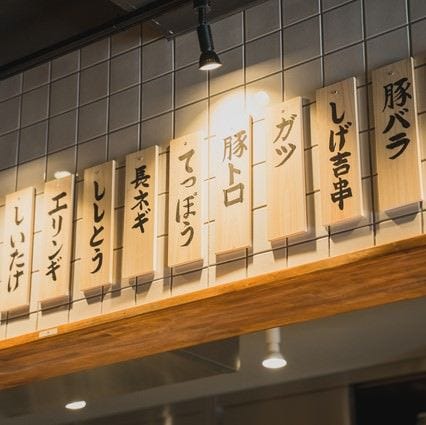 豚バラ
しげ吉串
ガツ
豚トロ
てっぽう
長ネギ
ししとう
エリンギ
しいたけ